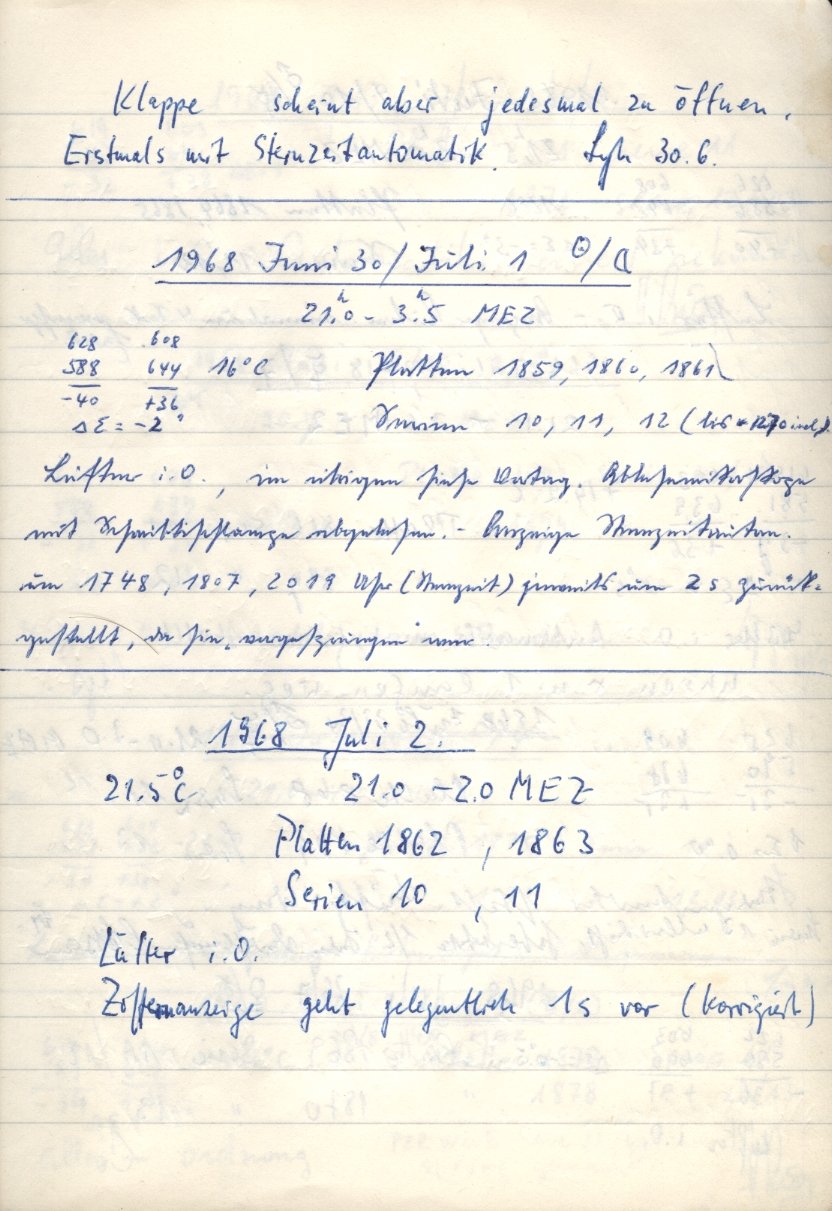 Klappe scheint aber jedesmal zu öffnen.
Erstmals mit Sternzeitautomatik. 30.6.
1968 Juni 30/Juli 1 ☉/☾
21ʰ.0 - 3ʰ.5 MEZ
628 608
588 644 16°C Platten 1859, 1860, 1861
-40 +36
ΔΣ = -2° Serien 10, 11, 12 (bis 1270 incl.).
Lüfter i.O., im übrigen siehe Vortag.
mit Schreibtischlampe abgelesen. - Anzeige
um 1748, 1807, 2019 Uhr (Sternzeit) jeweils um 2s zurück-
gestellt, da sie vorgesprungen war.
1968 Juli 2.
21.5°C 21.0 - 2.0 MEZ
Platten 1862, 1863
Serien 10, 11
Lüfter i.O.
Ziffernanzeige geht gelegentlich 1s vor (korrigiert)